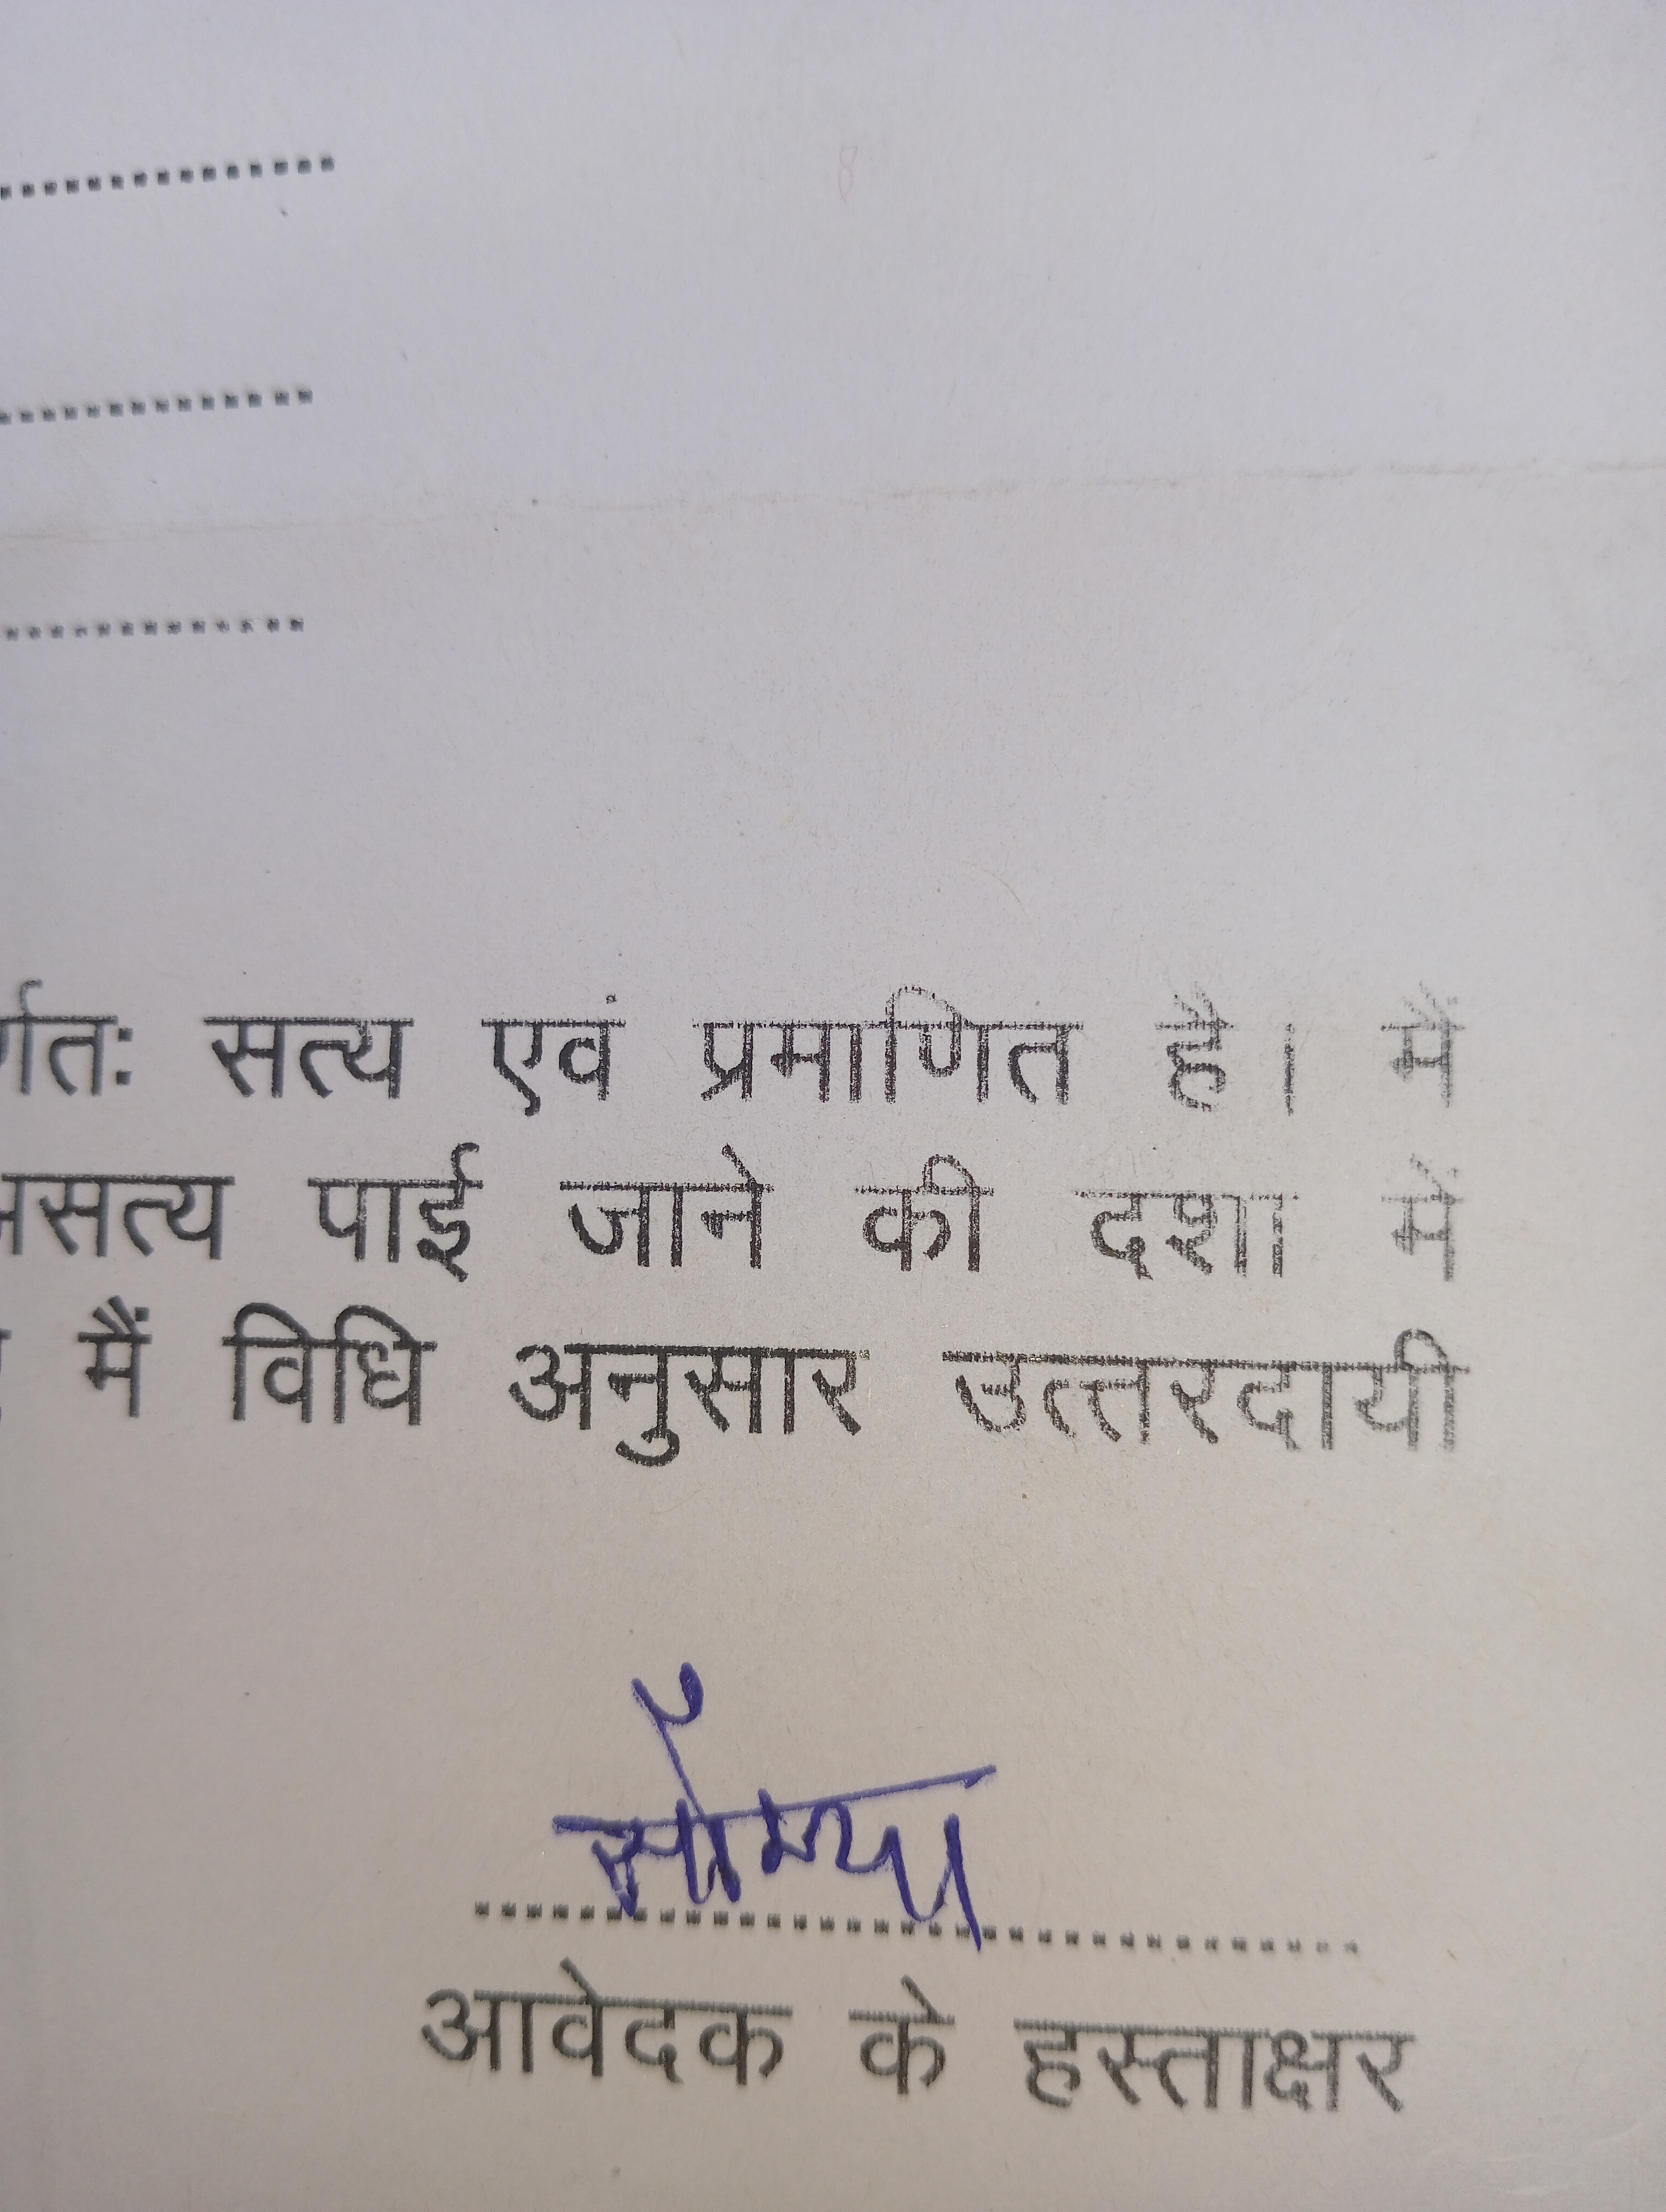 .............
.............
.............
र्णतः सत्य एवं प्रमाणित है। मैं
असत्य पाई जाने की दशा में
मैं विधि अनुसार उत्तरदायी
सौम्या
आवेदक के हस्ताक्षर